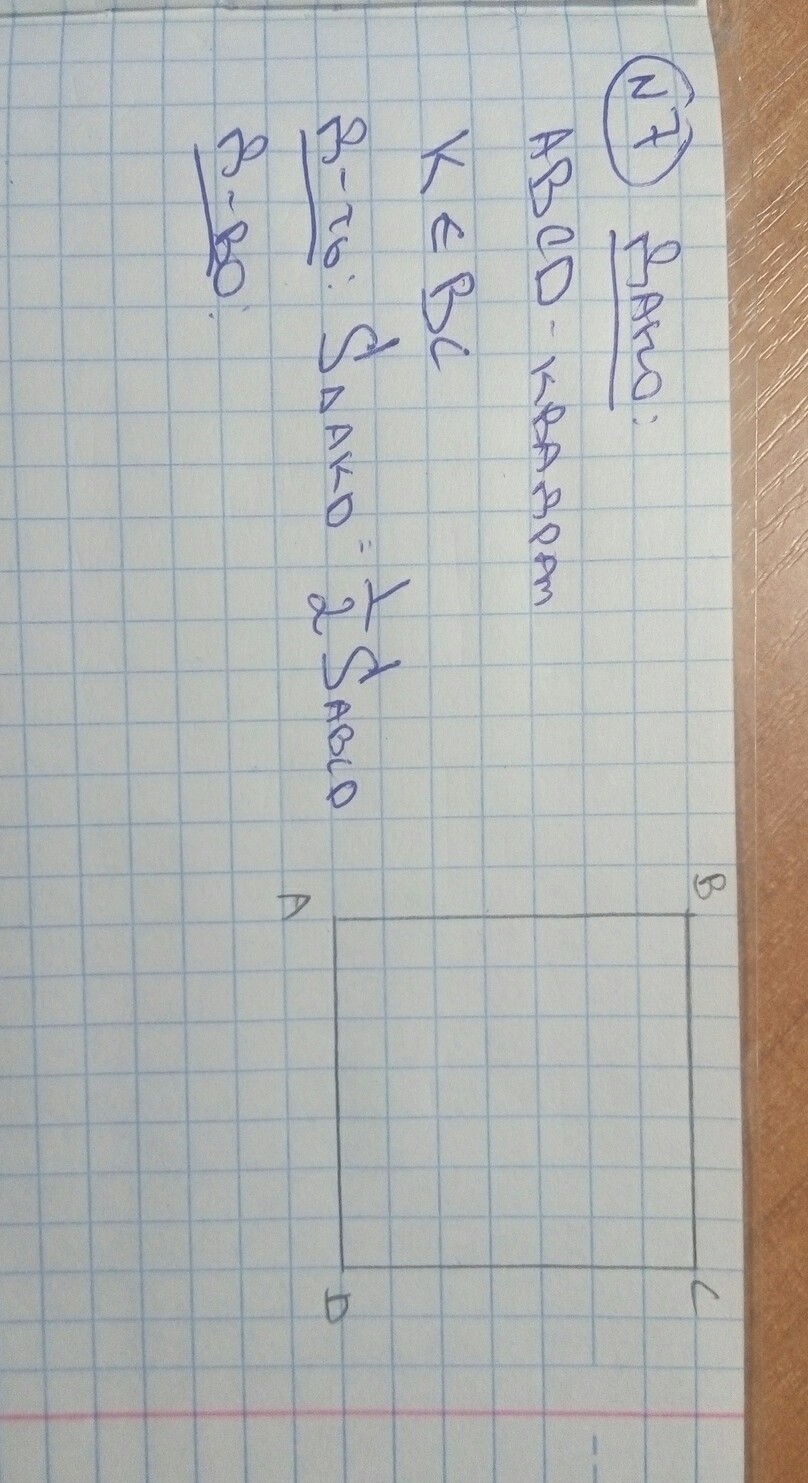 N7 Дано:
ABCD - квадрат
K ∈ BC
Д-ть: S△AKD = 1/2 SABCD
Д-во:
B
C
A
D